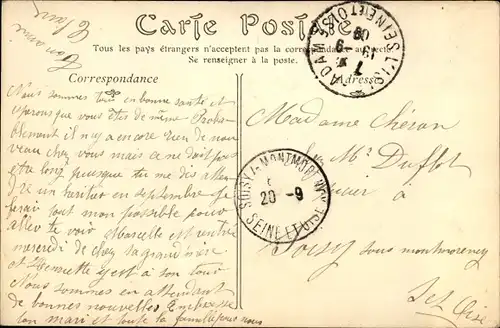 Ton amie
Clara
Carte Postale
Tous les pays étrangers n'acceptent pas la correspondance au recto.
Se renseigner à la poste.
Correspondance
Adresse
Nous sommes tous en bonne santé et
espérons que vous êtes de même Proba-
blement il n'y a encore rien de nou
veau chez vous mais ça ne doit pas
être long puisque tu me dis atten
dre un héritier en septembre je
ferai tout mon possible pour
aller te voir Marcelle est rentrée
mercredi de chez sa grand'mère
et Henriette y est à son tour
Nous sommes en attendant
de bonnes nouvelles Embrasse
ton mari et toute la famille pour nous
Madame Chéron
Mr Duflot
à
Soisy sous montmorency
Set Oise
L'ISLE-ADAM
SEINE-ET-OISE
SOISY-S-MONTMORENCY
20 -9
SEINE ET OISE